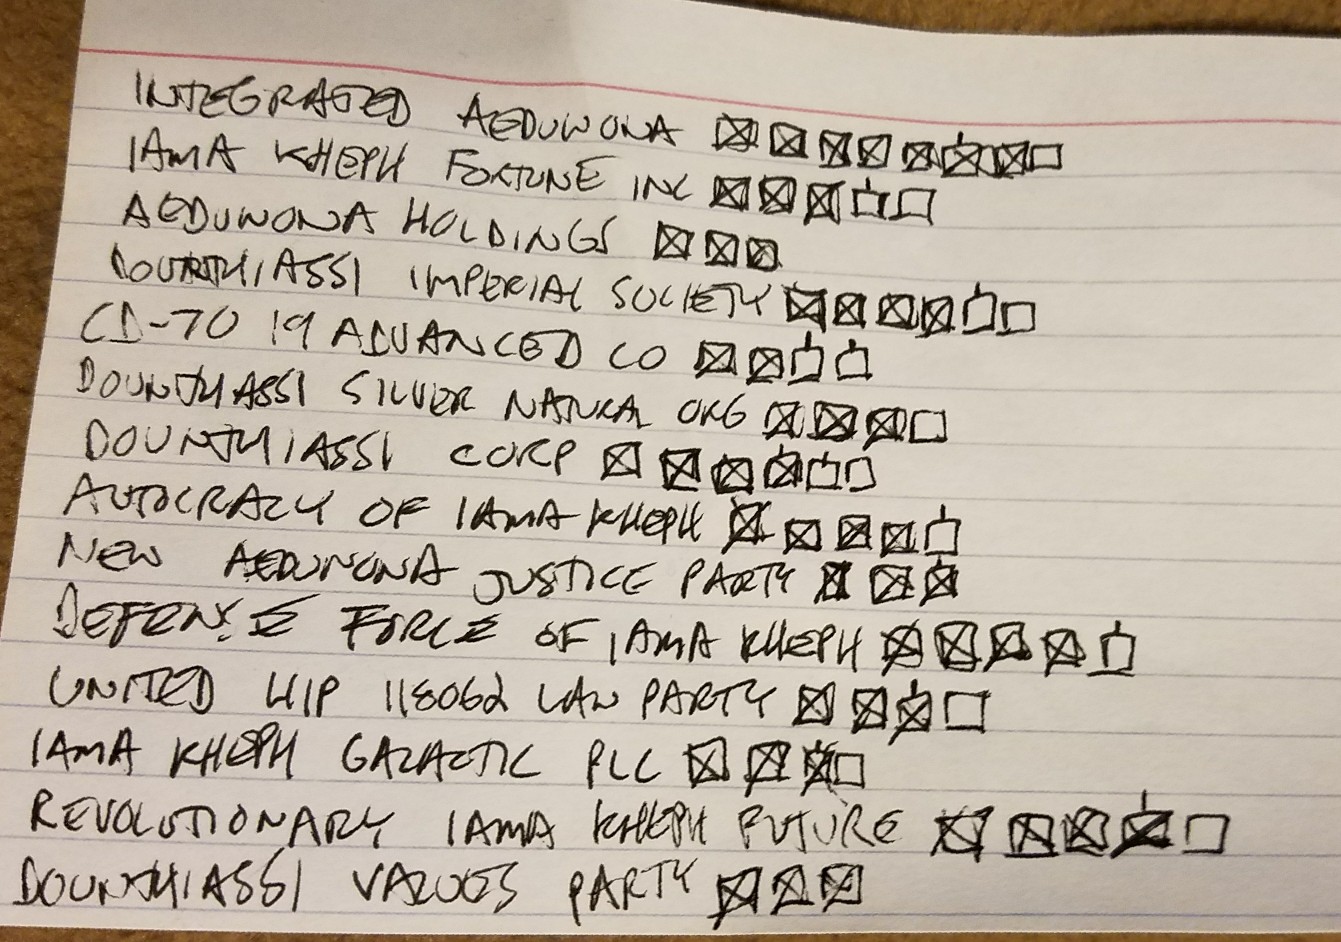 INTEGRATED AEDUWONA
IAMA KHEPH FORTUNE INC
AEDUWONA HOLDINGS
DOUNTHIASSI IMPERIAL SOCIETY
CD-70 19 ADVANCED CO
DOUNTHIASSI SILVER NATURAL ORG
DOUNTHIASSI CORP
AUTOCRACY OF IAMA KHEPH
NEW AEDUWONA JUSTICE PARTY
DEFENSE FORCE OF IAMA KHEPH
UNITED HIP 118062 LAW PARTY
IAMA KHEPH GALACTIC PLC
REVOLUTIONARY IAMA KHEPH FUTURE
DOUNTHIASSI VALUES PARTY